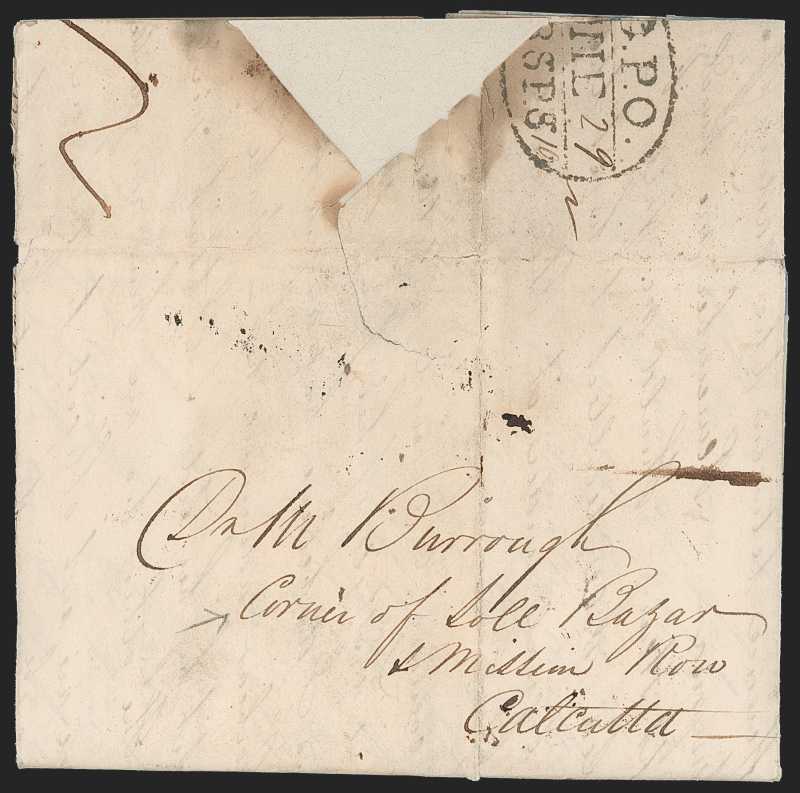 G.P.O.
29
RSPS
Dr M Burrough
Corner of Loll Bazar
& Mission Row
Calcutta